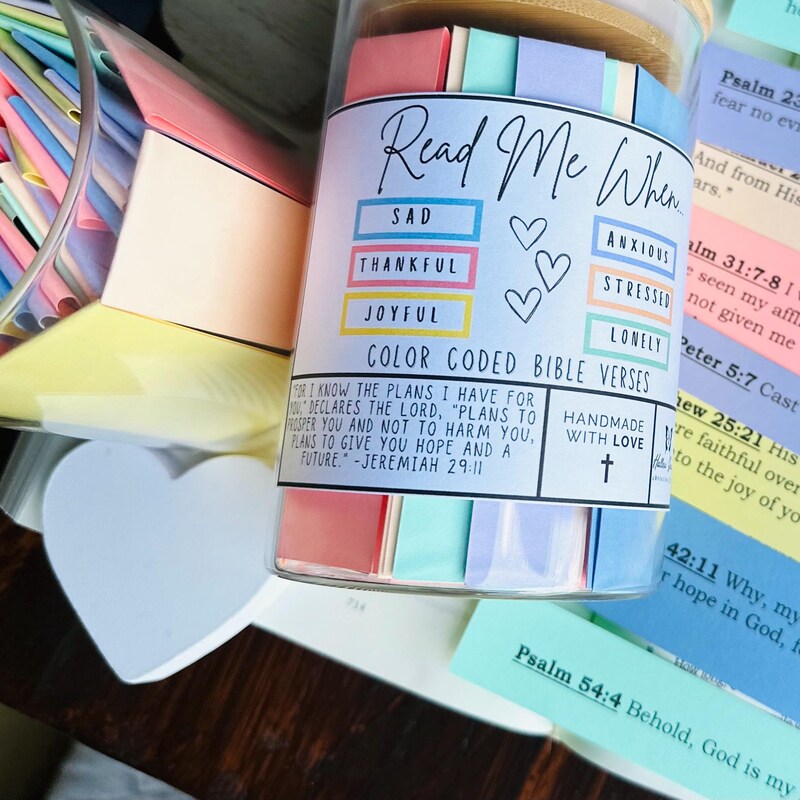 Read Me When...
SAD
THANKFUL
JOYFUL
ANXIOUS
STRESSED
LONELY
COLOR CODED BIBLE VERSES
"FOR I KNOW THE PLANS I HAVE FOR
YOU," DECLARES THE LORD, "PLANS TO
PROSPER YOU AND NOT TO HARM YOU,
PLANS TO GIVE YOU HOPE AND A
FUTURE." -JEREMIAH 29:11
HANDMADE
WITH LOVE
Psalm 23
fear no evi
And from His
ars."
alm 31:7-8 I
seen my affl
not given me
Peter 5:7 Cast
hew 25:21 His
re faithful over
to the joy of yo
42:11 Why, my
r hope in God, f
Psalm 54:4 Behold, God is my
714